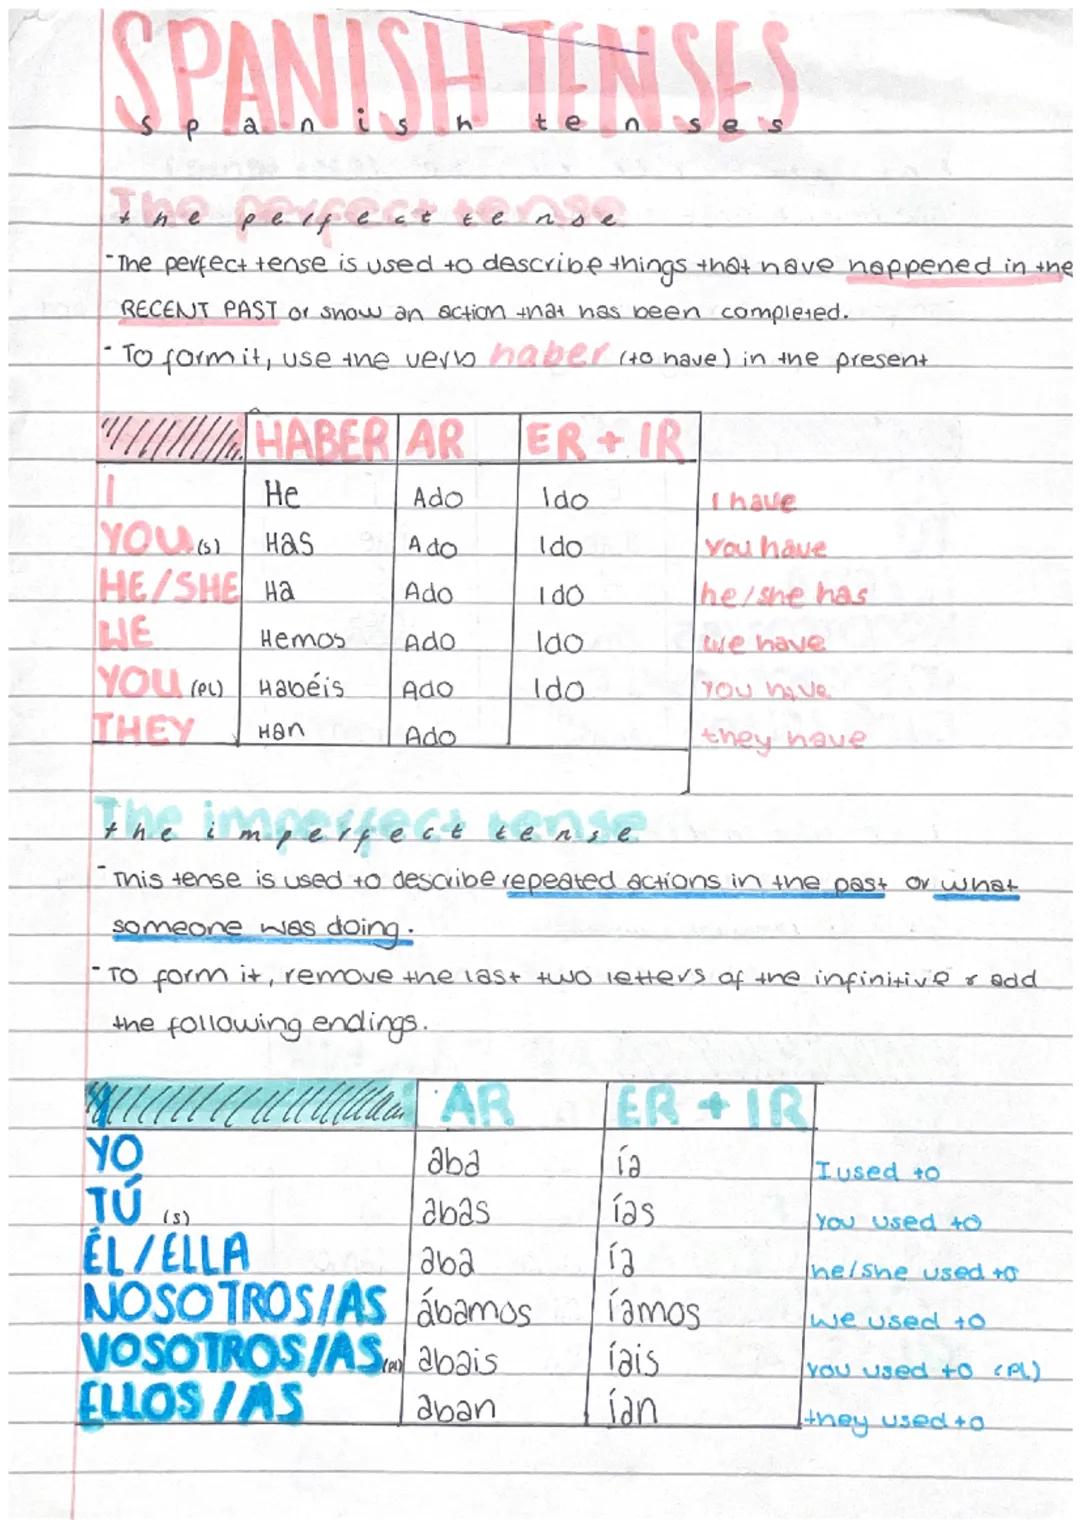 SPANISH TENSES
spanish tenses
The perfect tense
the perfect tense
- The perfect tense is used to describe things that have happened in the
RECENT PAST or show an action that has been completed.
- To form it, use the verb haber (to have) in the present
HABER AR ER + IR
I He Ado Ido I have
YOU (s) Has Ado Ido you have
HE/SHE Ha Ado Ido he/she has
WE Hemos Ado Ido we have
YOU (PL) Habéis Ado Ido You have
THEY Han Ado they have
The imperfect tense
the imperfect tense
- This tense is used to describe repeated actions in the past or what
someone was doing.
- To form it, remove the last two letters of the infinitive & add
the following endings.
AR ER + IR
YO aba ía I used to
TÚ (s) abas ías You used to
ÉL/ELLA aba ía he/she used to
NOSOTROS/AS ábamos íamos we used to
VOSOTROS/AS (PL) abais íais you used to (PL)
ELLOS/AS aban ían they used to